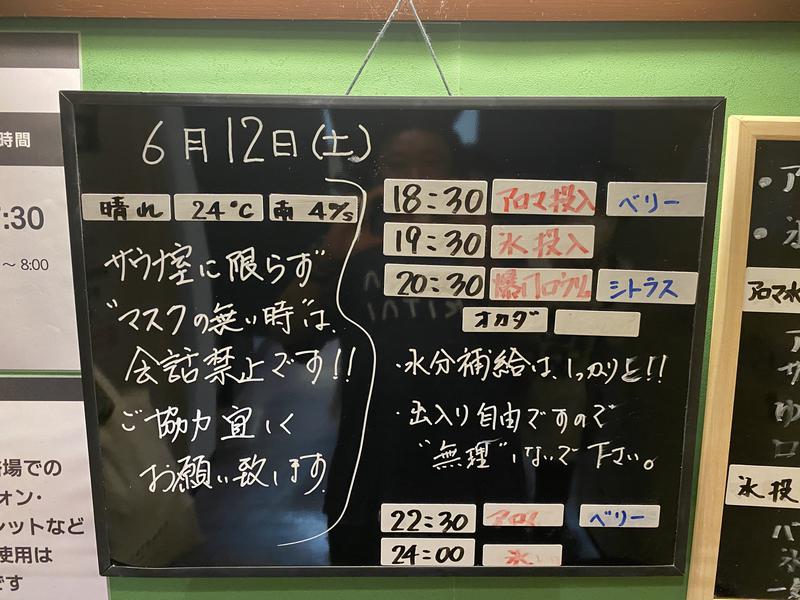 6月12日(土)
晴れ 24℃ 南 4m/s
サウナ室に限らず
"マスクの無い時"は、
会話禁止です!!
ご協力宜しく
お願い致します
18:30 アロマ投入 ベリー
19:30 氷投入
20:30 爆門ロウリュ シトラス
オカダ
・水分補給は、しっかりと!!
・出入り自由ですので
"無理"しないで下さい。
22:30 アロマ ベリー
24:00 氷
時間
:30
～8:00
場での
ォン・
レットなど
使用は
です
アロマ水
氷投